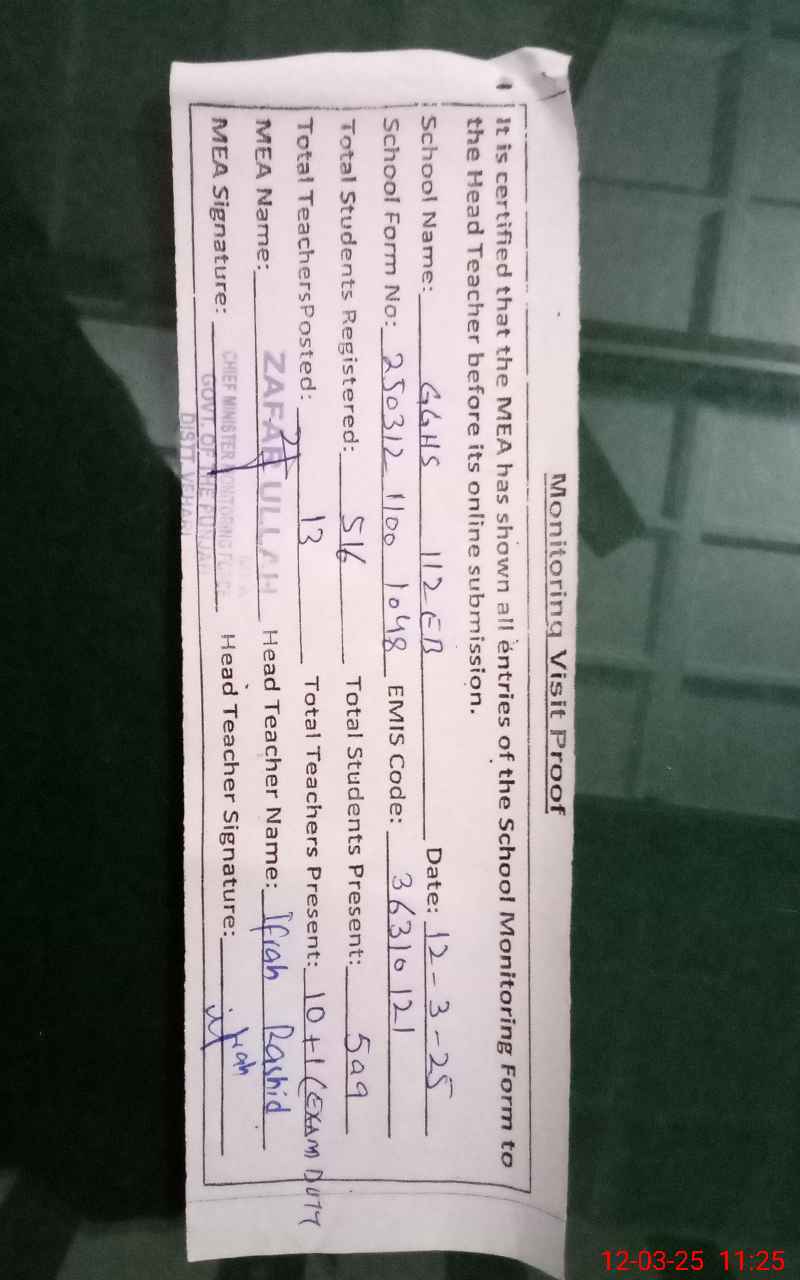 Monitoring Visit Proof
It is certified that the MEA has shown all entries of the School Monitoring Form to
the Head Teacher before its online submission.
School Name: GGHS 112 EB Date: 12-3-25
School Form No: 250312 1100 1048 EMIS Code: 36310121
Total Students Registered: 516 Total Students Present: 509
Total TeachersPosted: 13 Total Teachers Present: 10+1 (EXAM DUTY
MEA Name: ZAFAR ULLAH Head Teacher Name: Ifrah Rashid
MEA Signature: Head Teacher Signature: ifrah
CHIEF MINISTER MONITORING FORCE
GOVT. OF THE PUNJAB
DISTT. VEHARI
12-03-25 11:25